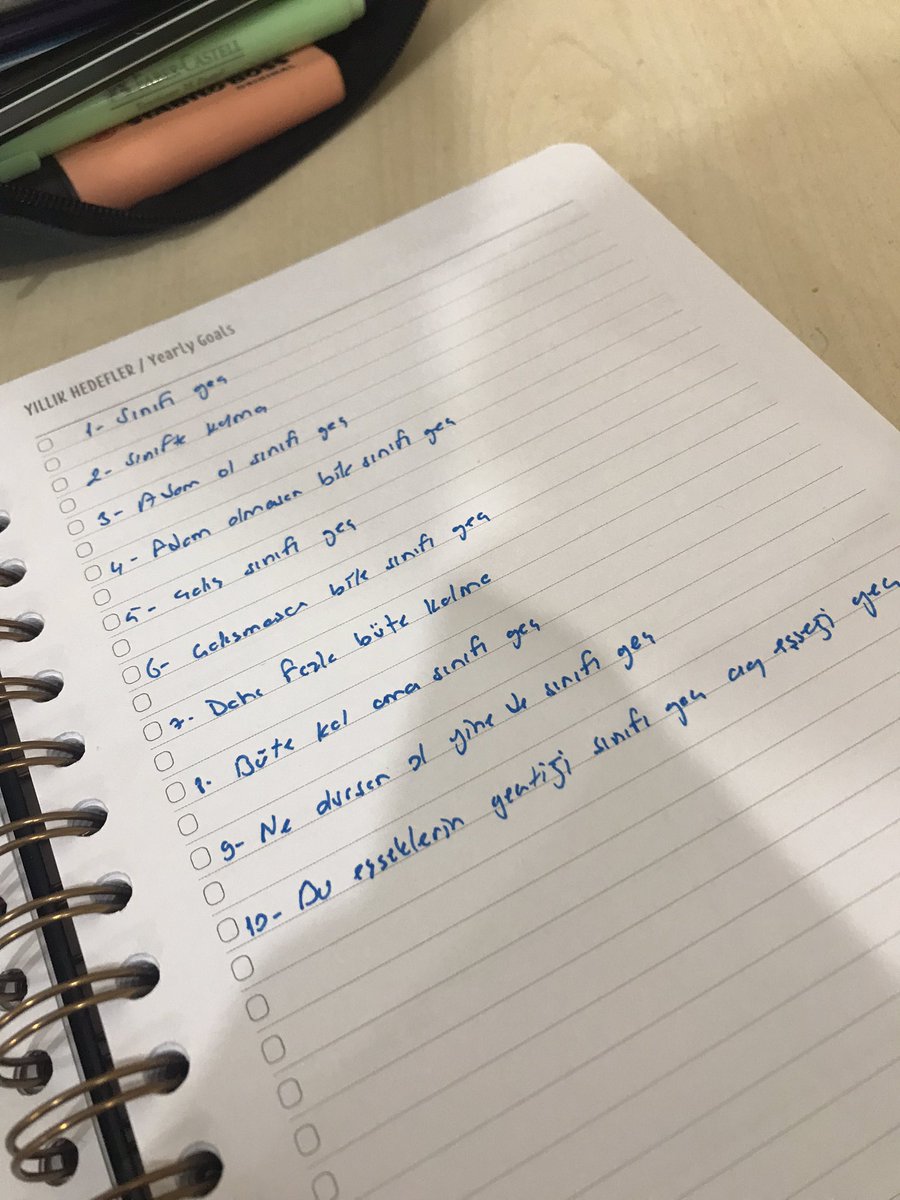 FABER-CASTELL
STABILO BOSS
ORIGINAL
YILLIK HEDEFLER / Yearly Goals
1- Sınıfı geç
2- Sınıfta kalma
3- Adam ol sınıfı geç
4- Adam olmasan bile sınıfı geç
5- Çalış sınıfı geç
6- Çalışmasan bile sınıfı geç
7- Daha fazla büte kalma
8- Büte kal ama sınıfı geç
9- Ne olursan ol yine de sınıfı geç
10- Bu eşşeklerin geçtiği sınıfı geç aq eşşeği geç